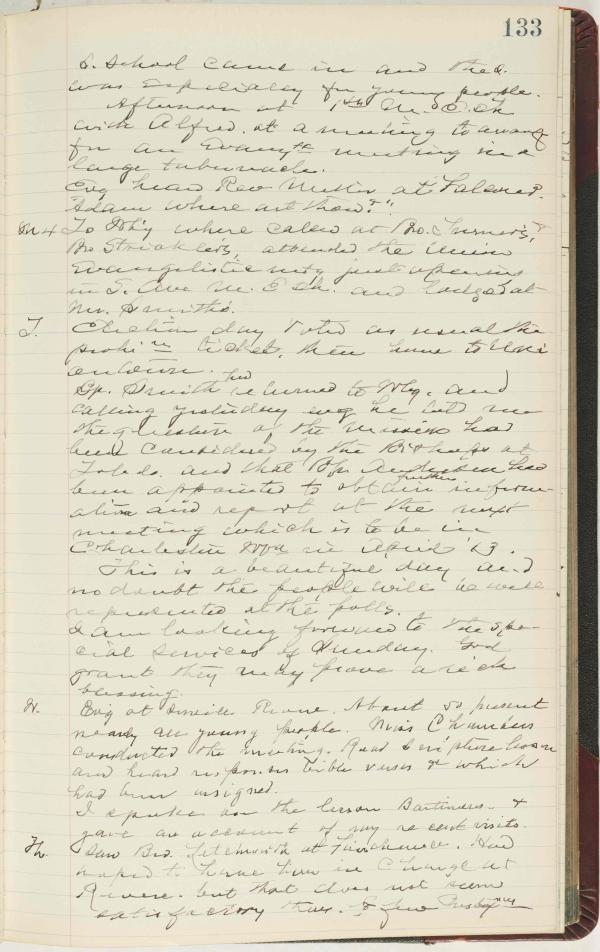 133
S. School came in and the S.
was especially for young people.
Afternoon at 1st M. E. Ch
with Alfred. at a meeting to arrange
for an Evang meeting in a
large tabernacle.
Evg heard Rev Miller at
"Adam where art thou?"
M 4 To Phg where called at Bro. Turner's, &
Bro Strickler's, attended the Union
Evangelistic mtg just opening
in 5. Ave M. E. Ch. and lodged at
Mr. Smith's.
T. Election day Voted as usual the
prohi ticket, then home to Uni
ontown.
Bp. Smith had returned to and
calling yesterday evg he told me
the question of the mission had
been considered by the Bishops at
Toledo. and that Bp. Anderson had
been appointed to obtain further inform-
ation and report at the next
meeting which is to be in
Charleston in April '13.
This is a beautiful day and
no doubt the people will be well
represented at the polls.
I am looking forward to the spe-
cial services of Sunday. God
grant they may prove a rich
blessing.
W. Evg at Smile Rivere. About 50 present
nearly all young people. Miss Chambers
conducted the meeting. Read Scripture lesson
and heard respon. in bible verses which
had been assigned.
I spoke on the lesson Bartimeus. &
gave an account of my recent visits.
Th. Saw Bro. at Fairchance. Had
hoped to have him in Charge at
Rivere. but that does not seem
satisfactory there. A few